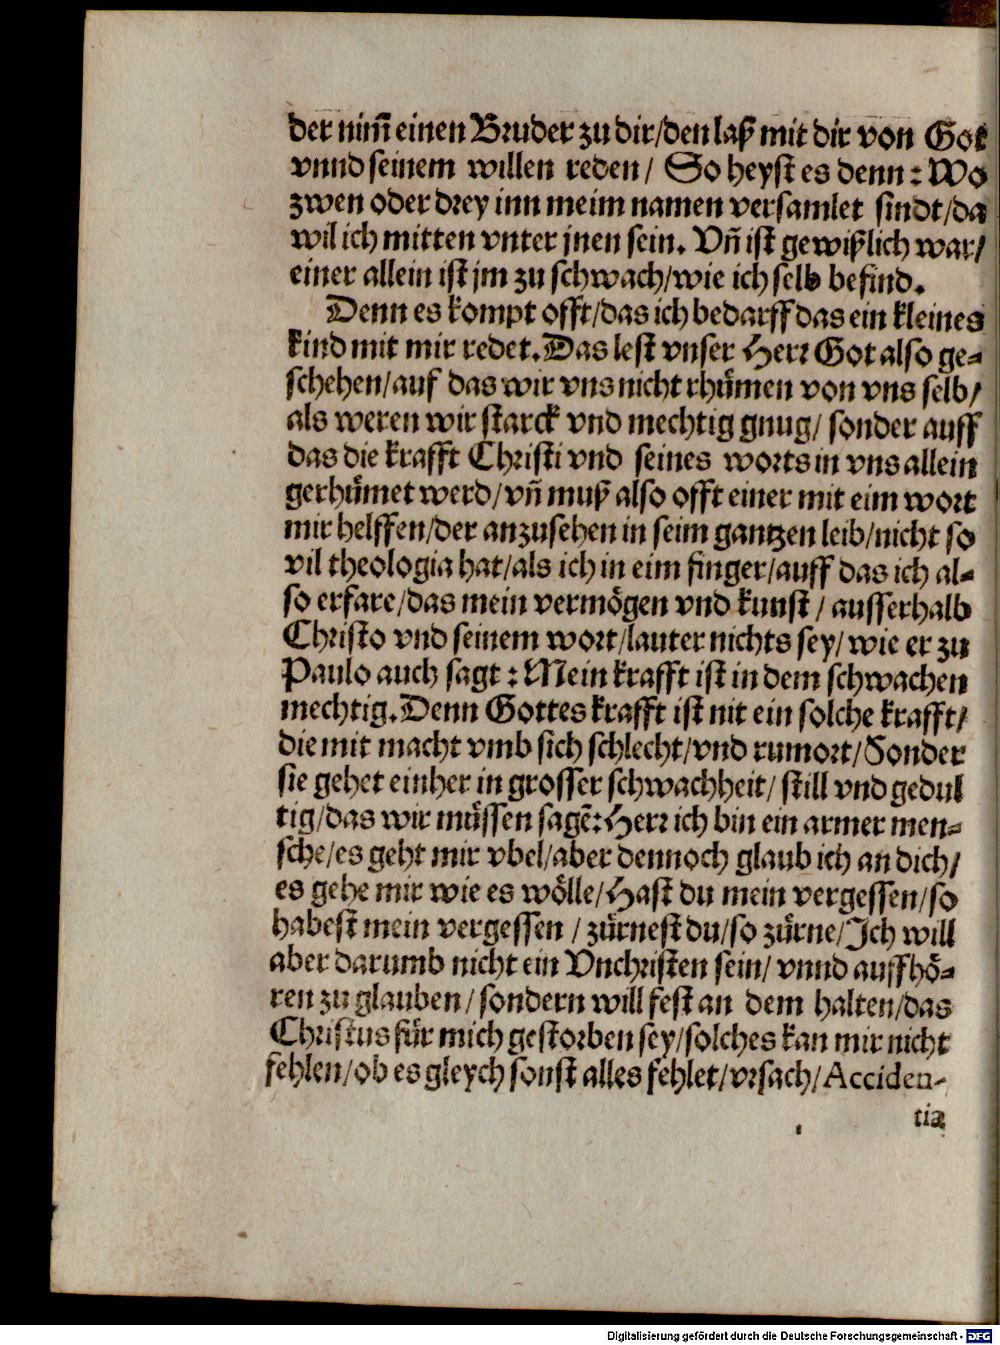 der nim̃ einen Bruder zu dir/den laß mit dir von Got
vnnd seinem willen reden/ So heyst es denn: Wo
zwen oder drey inn meim namen versamlet sindt/da
wil ich mitten vnter jnen sein. Vñ ist gewißlich war/
einer allein ist jm zu schwach/wie ich selb befind.
Denn es kompt offt/das ich bedarff das ein kleines
kind mit mir redet. Das lest vnser Herr Got also ge-
schehen/auf das wir vns nicht rhuͤmen von vns selb/
als weren wir starck vnd mechtig gnug/ sonder auff
das die krafft Christi vnd seines worts in vns allein
gerhuͤmet werd/vñ muß also offt einer mit eim wort
mir helffen/der anzusehen in seim gantzen leib/nicht so
vil theologia hat/als ich in eim finger/auff das ich al-
so erfare/das mein vermoͤgen vnd kunst/ ausserhalb
Christo vnd seinem wort/lauter nichts sey/ wie er zu
Paulo auch sagt: Mein krafft ist in dem schwachen
mechtig. Denn Gottes krafft ist nit ein solche krafft/
die mit macht vmb sich schlecht/vnd rumort/Sonder
sie gehet einher in grosser schwachheit/ still vnd gedul
tig/das wir muͤssen sagẽ: Herr ich bin ein armer men-
sche/es geht mir vbel/aber dennoch glaub ich an dich/
es gehe mir wie es woͤlle/Hast du mein vergessen/so
habest mein vergessen / zuͤrnest du/so zuͤrne/Ich will
aber darumb nicht ein Vnchristen sein/ vnnd auffhoͤ-
ren zu glauben/ sondern will fest an dem halten/das
Christus fuͤr mich gestorben sey/solches kan mir nicht
fehlen/ob es gleych sonst alles fehlet/vrsach/Acciden-
tia
Digitalisierung gefördert durch die Deutsche Forschungsgemeinschaft - DFG